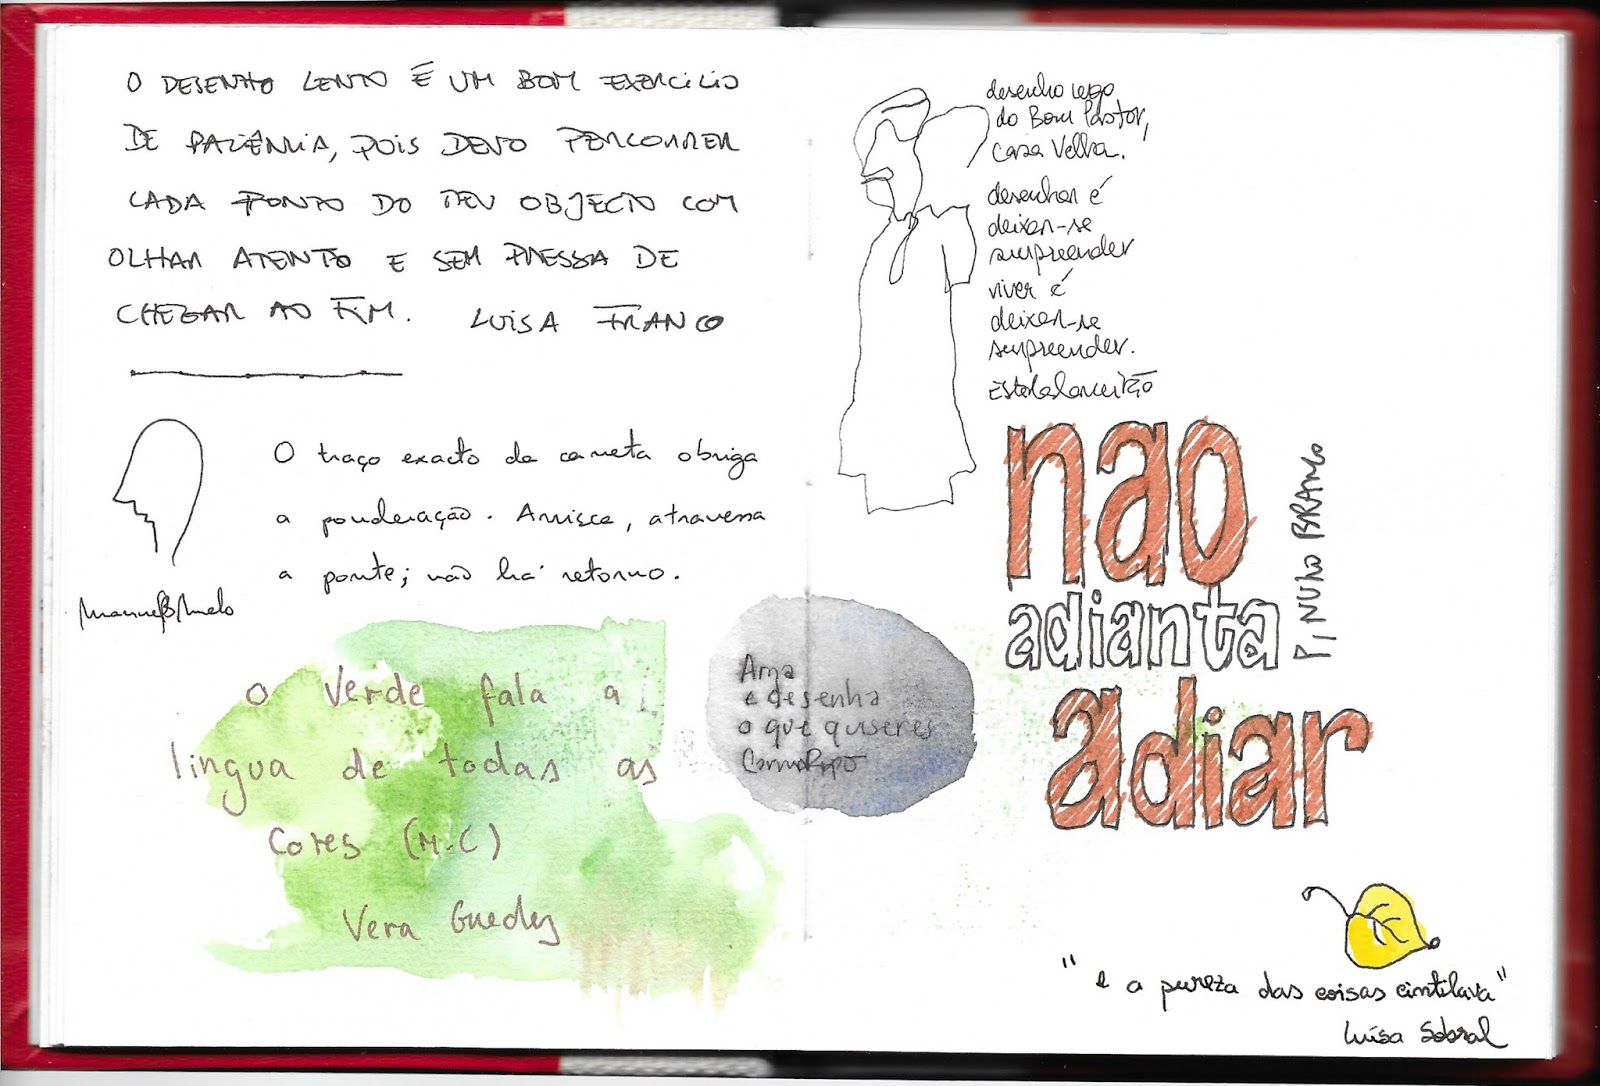 O DESENHO LENTO É UM BOM EXERCÍCIO
DE PACIÊNCIA, POIS DEVO PERCORRER
CADA PONTO DO TEU OBJECTO COM
OLHAR ATENTO E SEM PRESSA DE
CHEGAR AO FIM. LUISA FRANCO
O traço exacto da caneta obriga
a ponderação. Arrisca, atravessa
a ponte; não há retorno.
O Verde fala a
lingua de todas as
Cores (M.C)
Vera Guedes
Ama
e desenha
o que quiseres
desenho cego
do Bom Pastor,
Casa Velha.
desenhar é
deixar-se
surpreender
viver é
deixar-se
surpreender.
não
adianta
adiar
PINUHO BRAMO
"e a pureza das coisas cintilava"
Luísa Sobral